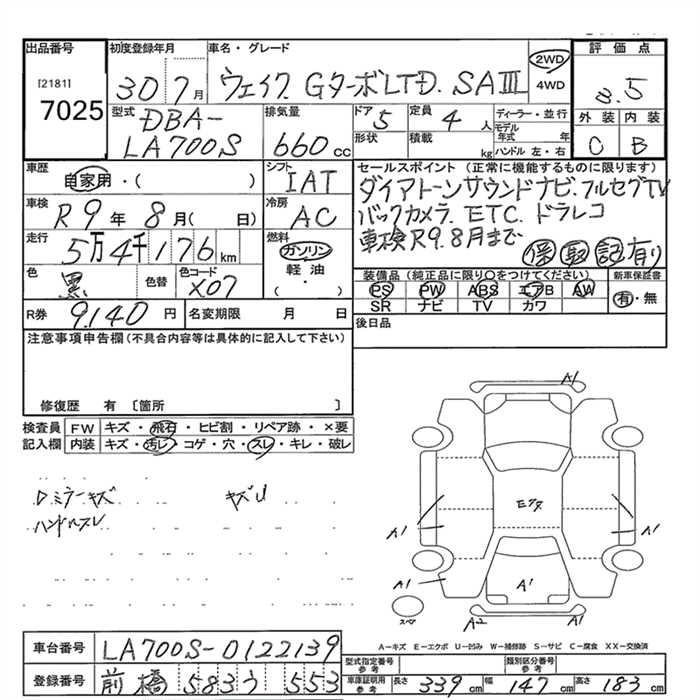 出品番号
[2181]
7025
初度登録年月
30 7月
車名・グレード
ウェイク GターボLTD. SAⅢ
2WD
4WD
評価点
3.5
外装 内装
C B
型式
DBA-
LA700S
排気量
660cc
ドア
5
形状
定員
4人
積載
kg
ディーラー・並行
モデル年式 年
ハンドル 左・右
車歴
自家用・( )
シフト
IAT
車検
R9年 8月( 日)
冷房
AC
走行
5万4千176km
燃料
ガソリン
軽油
・( )
色
黒
色替
色コード
X07
R券
9,140円
名変期限 月 日
セールスポイント(正常に機能するものに限ります)
ダイアトーンサウンドナビ.フルセグTV
バックカメラ.ETC.ドラレコ
車検R9.8月まで
保 取 記 有り
装備品(純正品に限り○をつけてください)
PS PW ABS エアB AW
SR ナビ TV カワ
新車保証書
有・無
後日品
注意事項申告欄(不具合内容等は具体的に記入して下さい)
修復歴 有 〔箇所 〕
検査員記入欄
FW キズ・飛石・ヒビ割・リペア跡・×要
内装 キズ・汚レ・コゲ・穴・スレ・キレ・破レ
Dミラーキズ
ハンドルスレ
キズU
A1
Eフタ
A1
A1
A1
A1
スペア
A2
A1
A-キズ E-エクボ U-凹み W-補修跡 S-サビ C-腐食 XX-交換済
車台番号
LA700S-0122139
登録番号
前橋 583 う 553
型式指定番号 参考
類別区分番号 参考
車庫証明用 参考
長さ 339cm
幅 147cm
高さ 183cm